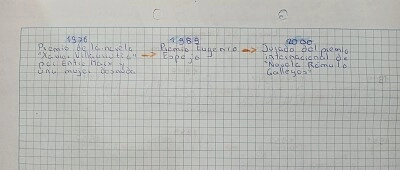 1976
Premio de la novela
"Xavier Villaurrutia"
por Entre Marx y
una mujer desnuda
1989
Premio Eugenio
Espejo
2000
Jurado del premio
internacional de
"Novela Romulo
Gallegos"